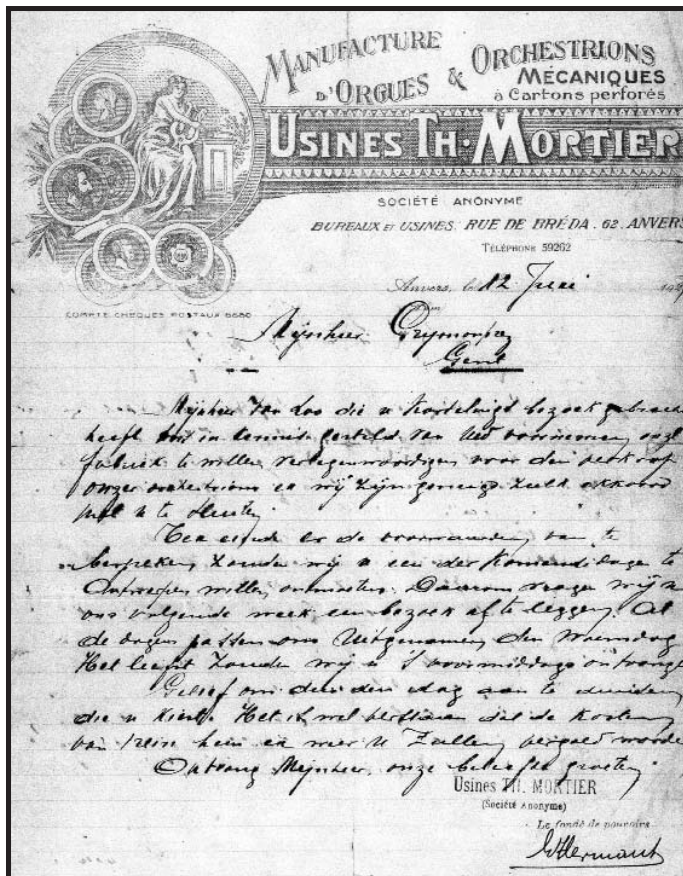 MANUFACTURE
D'ORGUES & ORCHESTRIONS
MÉCANIQUES
à Cartons perforés
USINES TH. MORTIER
SOCIÉTÉ ANONYME
BUREAUX ET USINES: RUE DE BRÉDA. 62. ANVERS
TÉLÉPHONE 59262
Anvers, le 12 Juni
COMPTE CHÈQUES POSTAUX 6680
Mijnheer
Gent
Mijnheer Van Loo die u kortelings bezoek
heeft ons in kennis gesteld van voornemen onze
fabriek te willen vertegenwoordigen voor den verkoop
onzer orchestrions en wij zijn geneigd zulk akkoord
met u te sluiten
Ten einde er de voorwaarden van te
bespreken zouden wij u een der komende dagen te
Antwerpen willen ontmoeten. Daarom vragen wij u
ons volgende week een bezoek af te leggen. Al
de dagen passen ons uitgenomen den woensdag
Het liefst zouden wij u 's voormiddags
Gelief ons den dag aan te duiden
die u kiest. Het is wel verstaan dat de kosten
van reis heen en weer u zullen vergoed
Ontvang Mijnheer, onze beleefde groeten
Usines TH. MORTIER
(Société Anonyme)
Le fondé de pouvoirs